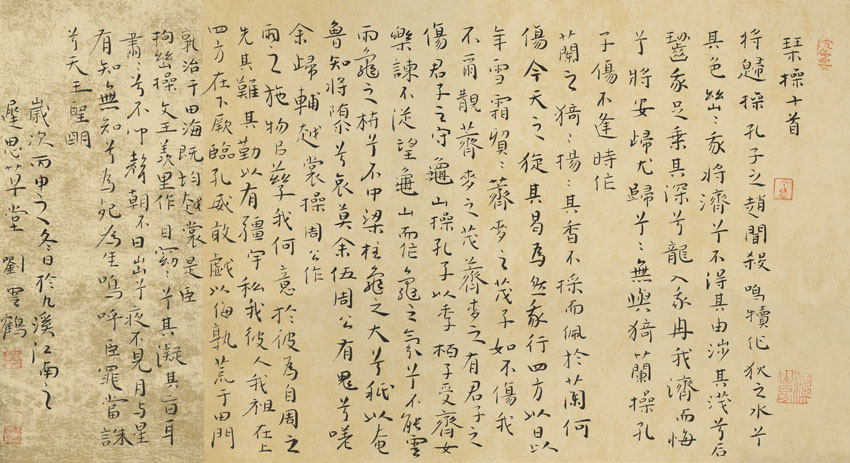 琴操十首
将歸操孔子之趙聞殺鳴犢作狄之水兮
其色幽〻我将濟兮不得其由涉其淺兮石
齧我足乘其深兮龍入我舟我濟而悔
兮將安歸尤歸兮〻無與猗蘭操孔
子傷不逢時作
蘭之猗〻揚〻其香不採而佩於蘭何
傷今天之旋其曷為然我行四方以日以
年雪霜貿〻薺麥之茂子如不傷我
不爾覯薺麥之茂薺麥之有君子之
傷君子之守龜山操孔子以季桓子受齊女
樂諫不從望龜山而作龜之氛兮不能雲
雨龜之枿兮不中梁柱龜之大兮祇以奄
魯知將隳兮哀莫余伍周公有鬼兮嗟
余歸輔越裳操周公作
雨之施物以孳我何意於彼為自周之
先其難其勤以有疆宇私我後人我祖在上
四方在下厥臨孔威敢戲以侮孰荒于田門
孰治于田海既均越裳是臣
拘幽操文王羑里作目窈〻兮其凝其盲耳
肅〻兮不聞聲朝不日出兮夜不見月與星
有知無知兮為死為生嗚呼臣罪當誅
兮天王聖明
歲次丙申之冬日於九溪江南之
墨思草堂 劉雲鶴